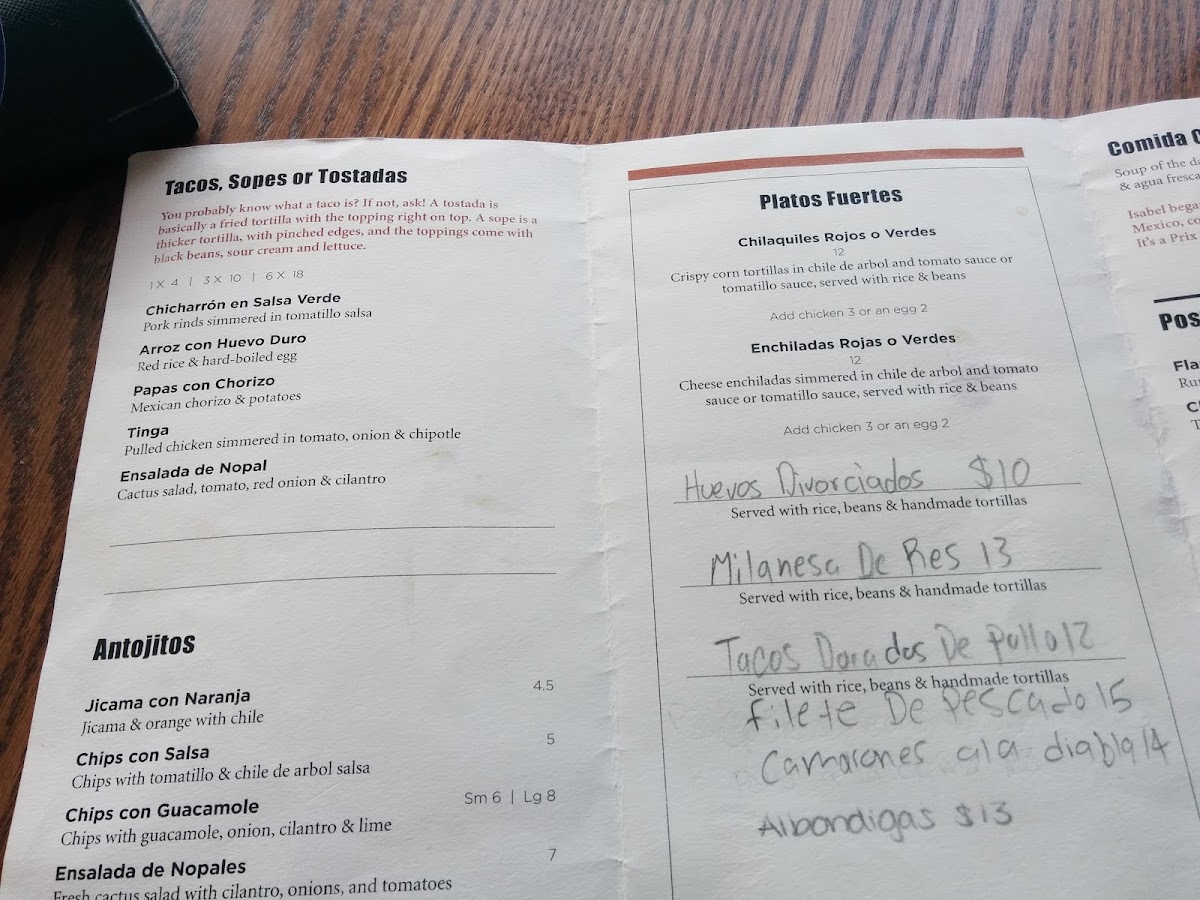 Tacos, Sopes or Tostadas
You probably know what a taco is? If not, ask! A tostada is
basically a fried tortilla with the topping right on top. A sope is a
thicker tortilla, with pinched edges, and the toppings come with
black beans, sour cream and lettuce.
1 X 4 | 3 X 10 | 6 X 18
Chicharrón en Salsa Verde
Pork rinds simmered in tomatillo salsa
Arroz con Huevo Duro
Red rice & hard-boiled egg
Papas con Chorizo
Mexican chorizo & potatoes
Tinga
Pulled chicken simmered in tomato, onion & chipotle
Ensalada de Nopal
Cactus salad, tomato, red onion & cilantro
Antojitos
Jicama con Naranja 4.5
Jicama & orange with chile
Chips con Salsa 5
Chips with tomatillo & chile de arbol salsa
Chips con Guacamole Sm 6 | Lg 8
Chips with guacamole, onion, cilantro & lime
Ensalada de Nopales 7
Fresh cactus salad with cilantro, onions, and tomatoes
Platos Fuertes
Chilaquiles Rojos o Verdes
12
Crispy corn tortillas in chile de arbol and tomato sauce or
tomatillo sauce, served with rice & beans
Add chicken 3 or an egg 2
Enchiladas Rojas o Verdes
12
Cheese enchiladas simmered in chile de arbol and tomato
sauce or tomatillo sauce, served with rice & beans
Add chicken 3 or an egg 2
Huevos Divorciados $10
Served with rice, beans & handmade tortillas
Milanesa De Res 13
Served with rice, beans & handmade tortillas
Tacos Dorados De pollo 12
Served with rice, beans & handmade tortillas
filete De Pescado 15
Camarones ala diabla 14
Albondigas $13
Comida
Soup of the
& agua fresca
Isabel
Mexico,
It's a Prix